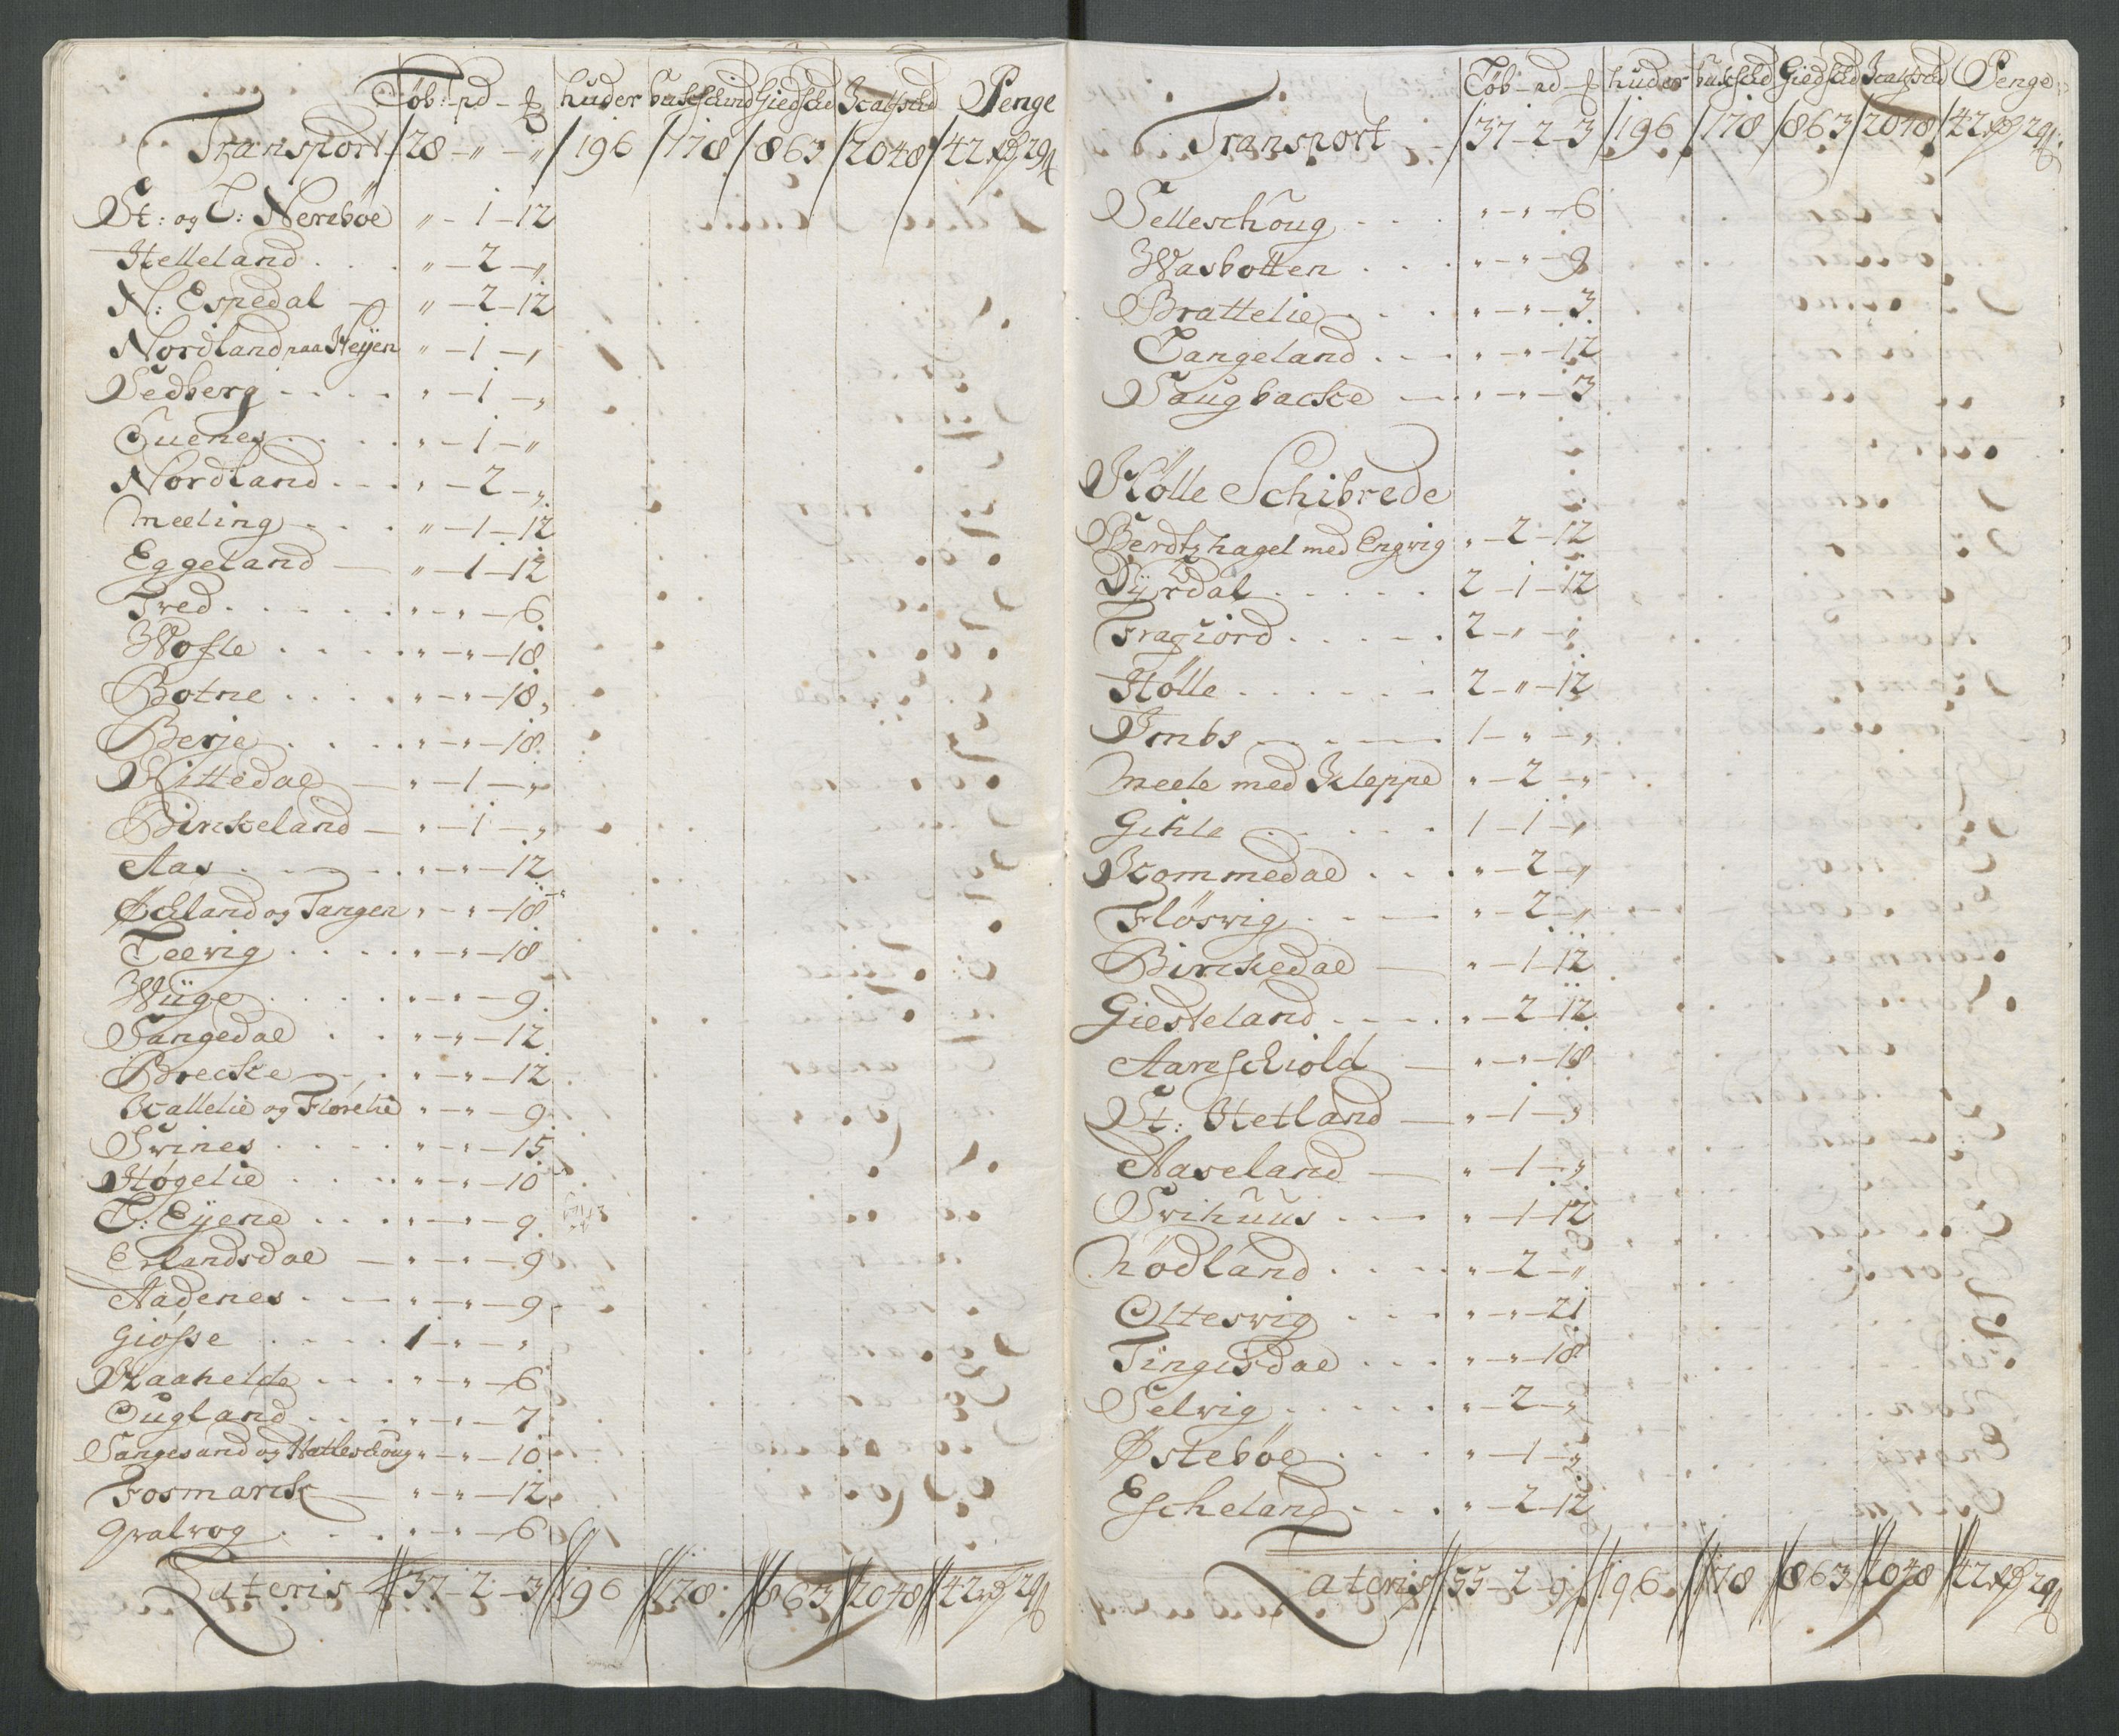 Løb: pd huder buckschind Giedschd Kalfschd Penge
Transport 28 - " - " 196 178 863 2048 42 29
St: og L: Nerebøe " - 1 - 12
Helleland . . . " - 2 - "
N: Espedal - " - 2 - 12
Nordland paa Heyen " - 1 - "
Sedberg . . . . " - 1 - "
Tuenes . . . . " - 1 - "
Nordland . . . " - 2 - "
Meeling . . . " - 1 - 12
Eggeland — " - 1 - 12
Tved . . . . . " - " - 6
Wofle . . . . " - " - 18
Botne . . . . . " - " - 18
Berje . . . . " - " - 18
Rittedal — " - 1 - "
Birckeland — " - 1 - "
Aas . . . . " - " - 12
Øcland og Tangen " - " - 18
Teevig . . . . " - " - 18
Wiige . . . . " - " - 9
Tangedal . . . " - " - 12
Brecke . . . " - " - 12
Kallelie og Florelie " - " - 9
Svines . . . . " - " - 15
Høgelie . . . . " - " - 10
L: Eyene . . . " - " - 9
Erlandsdal — " - " - 9
Aadenes . . — " - " - 9
Giøsse . . . . 1 - " - "
Raahelde . . . " - " - 6
Ougland . . . . " - " - 7
Sangesand og Hatleschoug " - " - 10
Fosmarck — " - " - 12
Qvalvog . . . . " - " - 6
Lateris 37 - 2 - 3 196 178 863 2048 42 29
Løb pd huder buckschd Giedschd Kalfschd Penge
Transport 37 - 2 - 3 196 178 863 2048 42 29
Selleschoug . . . " - " - 6
Wasbotten . . . " - " - 9
Brattelie . . . " - " - 3
Tangeland . . . " - " - 12
Saugbacke — " - " - 3
Hølle Schibrede
Berdtzhagel med Engvig " - 2 - 12
Dyrdal . . . . . 2 - 1 - 12
Fragiord . . . . 2 - " - "
Hølle . . . . . . 2 - " - 12
Imbs . . . . 1 - " - "
Meele med Kleppe " - 2 - "
Gihle . . . . . 1 - 1 - "
Kommedal . . . " - 2 - "
Fløsvig . . . " - 2 - "
Birckedal — " - 1 - 12
Giesteland . . . " - 2 - 12
Aarschiold — " - " - 18
St: Hetland — " - 1 - "
Aaseland — " - 1 - "
Svihuus . . — " - 1 - 12
Hødland . . . . " - 2 - "
Oltesvig . . . . " - " - 21
Tingisdal . . . " - " - 18
Selvig . . . . . " - 2 - "
Østebøe . . . " - 1 - "
Escheland . . . " - 2 - 12
Lateris 55 - 2 - 9 196 178 863 2048 42 29